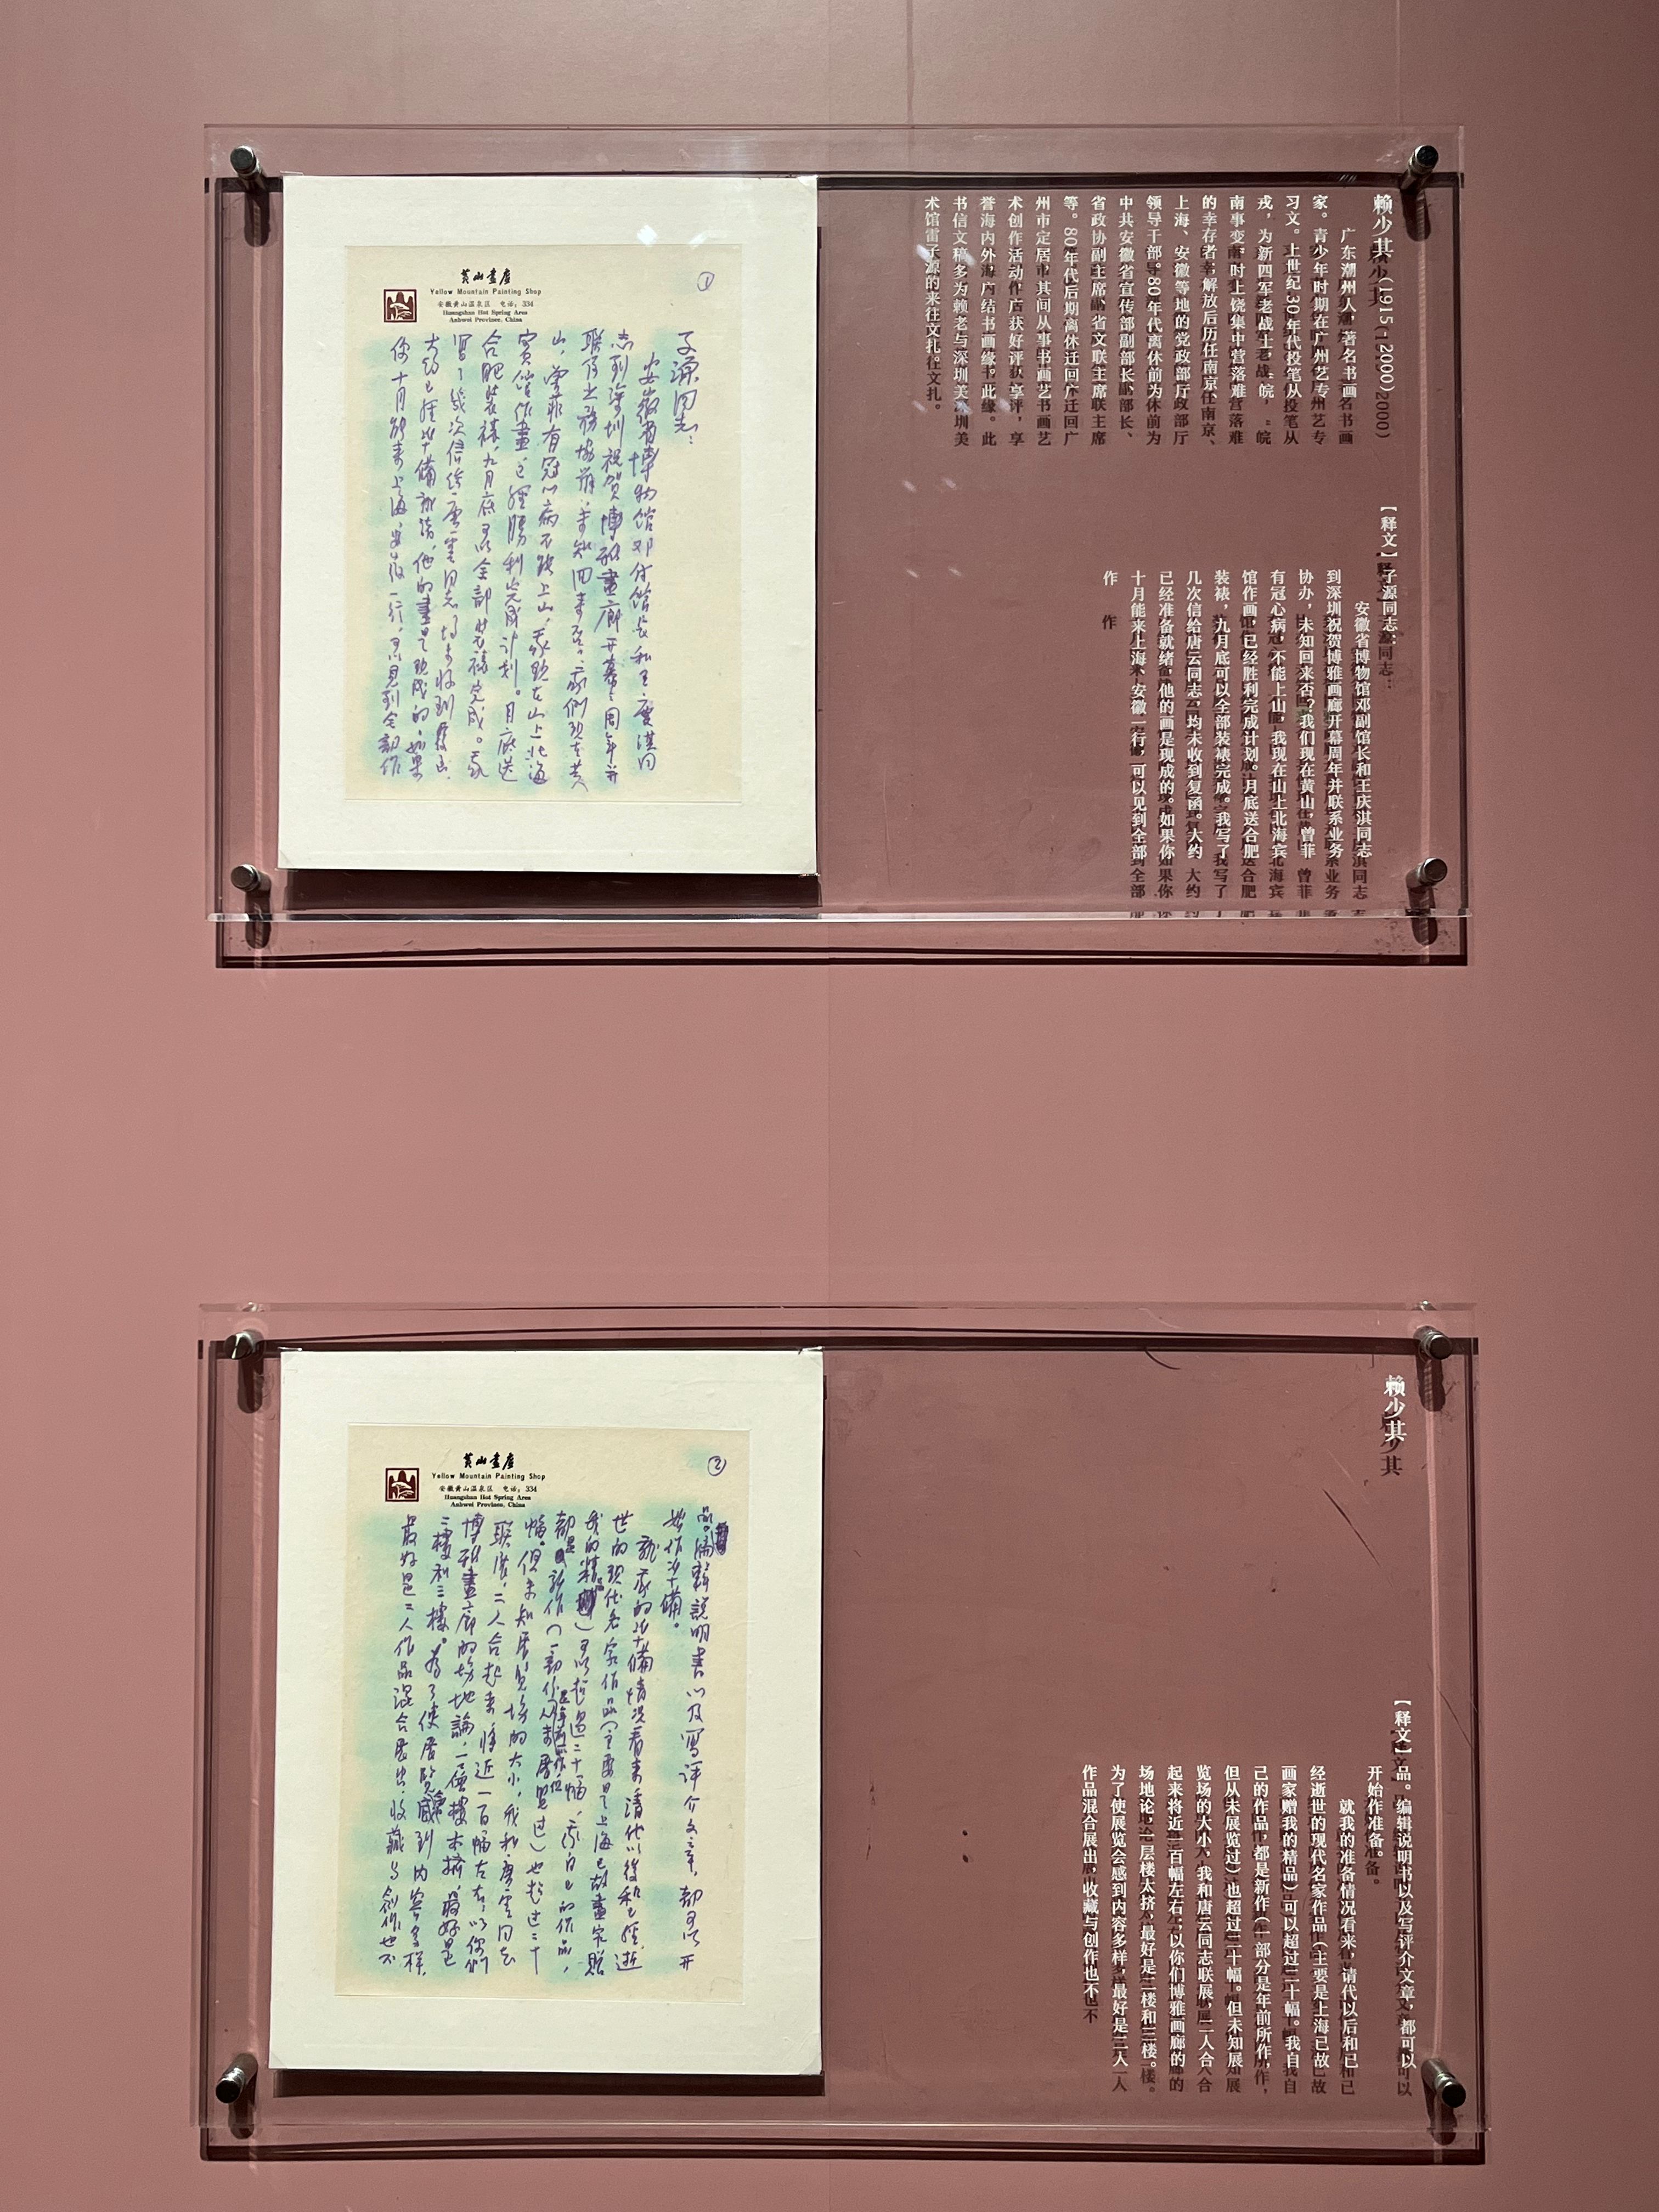 赖少其(1915-2000)
广东潮州人，著名书画
家。青少年时期在广州艺专
习文。上世纪30年代投笔从
戎，为新四军老战士，“皖
南事变”时上饶集中营落难
的幸存者。解放后历任南京、
上海、安徽等地的党政部厅
领导干部。80年代离休前为
中共安徽省宣传部副部长、
省政协副主席、省文联主席
等。80年代后期离休迁回广
州市定居，其间从事书画艺
术创作活动，作品获好评，享
誉海内外，海内结书画缘。此
书信文稿多为赖老与深圳美
术馆雷子源的来往文扎。
【释文】子源同志：
安徽省博物馆邓副馆长和王庆淇同志
到深圳祝贺博雅画廊开幕周年并联系业务
协办，未知回来否？我们现在黄山，曾菲
有冠心病，不能上山，我现在山上北海宾
馆作画，已经胜利完成计划。月底送合肥
装裱，九月底可以全部装裱完成。我写了
几次信给唐云同志，均未收到复函。大约
已经准备就绪，他的画是现成的。如果你
十月能来上海、安徽一行，可以见到全部
作
①
黄山画店
Yellow Mountain Painting Shop
安徽黄山温泉区 电话：334
Huangshan Hot Spring Area
Anhwei Province, China
子源同志：
安徽省博物馆邓付馆长和王庆淇同
志到深圳祝贺博雅畫廊开幕周年并
联系业务协办，未知回来否？我们现在黄
山，曾菲有冠心病不能上山，我现在山上北海
宾馆作畫，已經勝利完成计划。月底送
合肥装裱，九月底可以全部装裱完成。我
寫了几次信给唐雲同志，均未收到复函。
大约已經准備就绪，他的畫是现成的。如果
你十月能来上海、安徽一行，可以見到全部作
赖少其
【释文】品。编辑说明书以及写评介文章，都可以
开始作准备。
就我的准备情况看来，请代以后和已
经逝世的现代名家作品（主要是上海已故
画家赠我的精品）可以超过二十幅。我自
己的作品，都是新作（一部分是年前所作，
但从未展览过）也超过二十幅。但未知展
览场的大小，我和唐云同志联展，二人合
起来将近一百幅左右，以你们博雅画廊的
场地论，一层楼太挤，最好是二楼和三楼。
为了使展览会感到内容多样，最好是二人
作品混合展出，收藏与创作也不
②
黄山画店
Yellow Mountain Painting Shop
安徽黄山温泉区 电话：334
Huangshan Hot Spring Area
Anhwei Province, China
品。编辑說明書以及寫评介文章，都可以开
始作准備。
就我的准備情况看来，清代以後和已經逝
世的现代名家作品（主要是上海已故畫家贈
我的精品）可以超過二十幅，我自己的作品，
都是新作（一部份是年前所作但从未展覽过）也超过二十
幅。但未知展覽場的大小，我和唐雲同志
联展，二人合起来将近一百幅左右，以你們
博雅畫廊的場地論，一層樓太挤，最好是
二樓和三樓。為了使展覽會感到内容多样，
最好是二人作品混合展出，收藏与創作也不